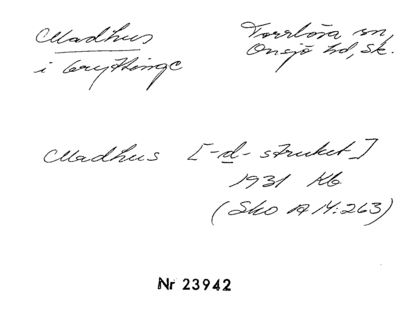 Madhus
i Gryttinge
Torrlösa sn,
Onsjö hd, Sk.
Madhus [-d- struket]
1931 Kb
(Sko A 14:263)
Nr 23942